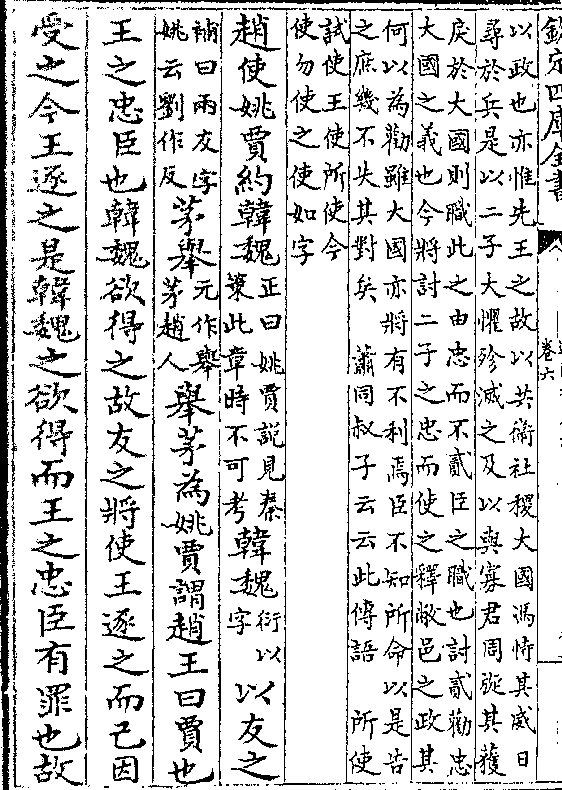 欽定四庫全書
卷六
以政也亦惟先王之故以共衛社稷大國馮恃其威日
尋於兵是以二子大懼殄滅之及以與寡君周旋其獲
戾於大國則職此之由忠而不貳臣之職也討貳勸忠
大國之義也今將討二子之忠而使之釋敝邑之政其
何以為勸雖大國亦將有不利焉臣不知所命以是告
之庶幾不失其對矣　蕭同叔子云云此傅語　所使
試使王使所使今
使勿使之使如字
趙使姚賈約韓魏正曰姚賈説見秦策此章時不可考韓魏衍以字以友之
補曰兩友字姚云劉作反茅舉元作舉茅趙人舉茅為姚賈謂趙王曰賈也
王之忠臣也韓魏欲得之故友之將使王逐之而己因
受之今王逐之是韓魏之欲得而王之忠臣有罪也故